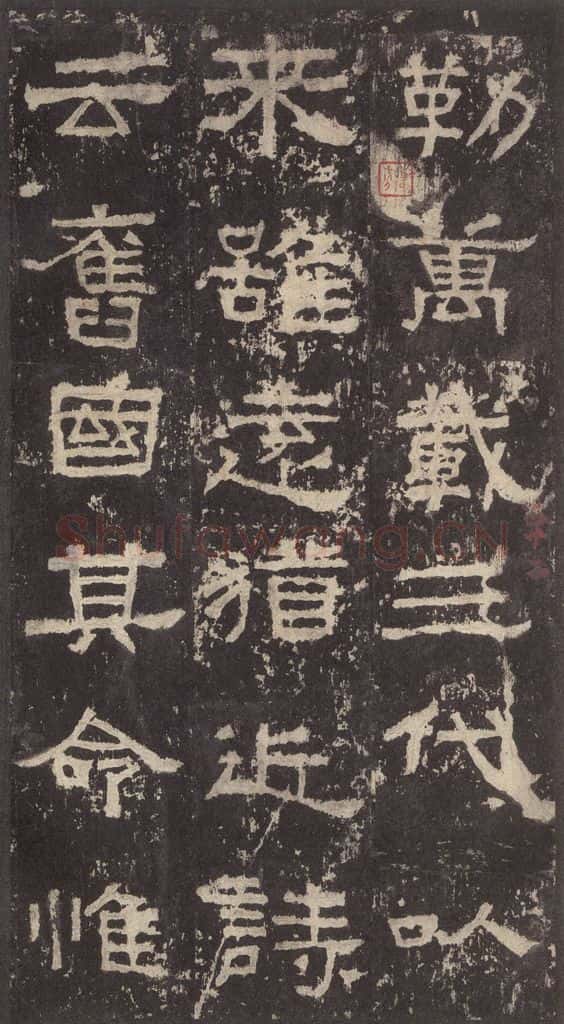 勒萬載三代以
来雖遠猶近詩
云舊國其命惟
Shufawang.CN